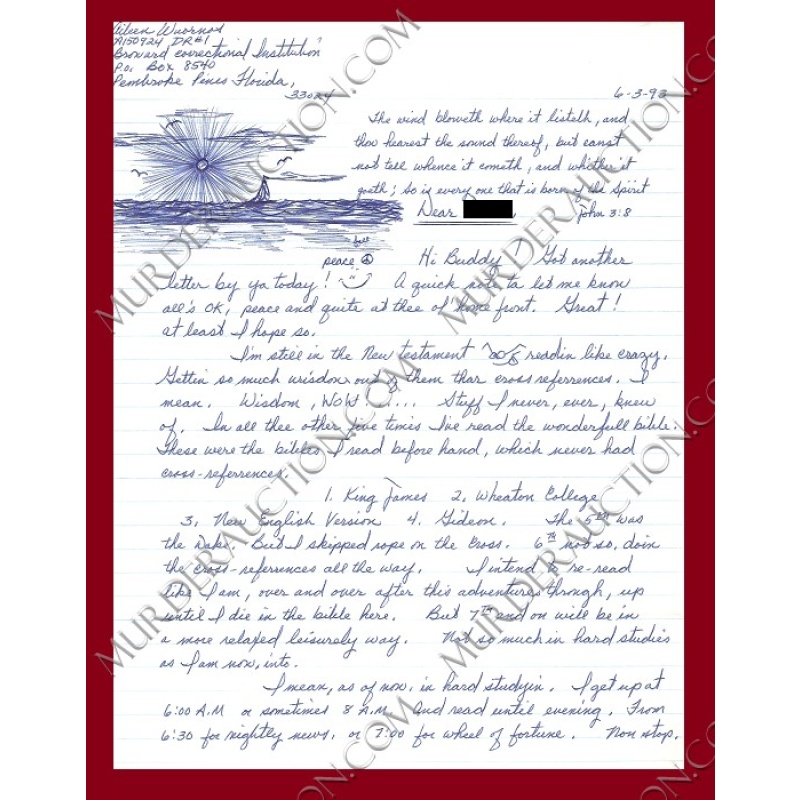 Aileen Wuornos
A150924 DR#1
Broward correctional Institution
P.O. Box 8540
Pembroke Pines Florida,
33024
6-3-93
The wind bloweth where it listeth, and
thou hearest the sound thereof, but canst
not tell whence it cometh, and whither it
goeth; so is every one that is born of the Spirit
John 3:8
Dear
peace
Hi Buddy! Got another
letter by ya today! A quick note to let me know
all's OK, peace and quite at thee ol' home front. Great!
at least I hope so.
I'm still in the New testament readin like crazy.
Gettin' so much wisdom out of them thar cross referrences. I
mean. Wisdom, WOW! .... Stuff I never, ever, knew
of. In all thee other five times I've read the wonderfull bible.
These were the bibles I read before hand, which never had
cross-referrences.
1. King James 2. Wheaton College
3. New English Version 4. Gideon. The 5TH was
the Dake. But I skipped rope on the Cross. 6TH not so, doin
the cross-references all the way. I intend to re-read
like I am, over and over after this adventures through, up
until I die in the bible here. But 7TH and on will be in
a more relaxed leisurely way. Not so much in hard studies
as I am now, into.
I mean, as of now, in hard studyin. I get up at
6:00 A.M or sometimes 8 A.M. and read until evening. From
6:30 for nightly news, or 7:00 for wheel of fortune. Non stop.
MURDERAUCTION.COM